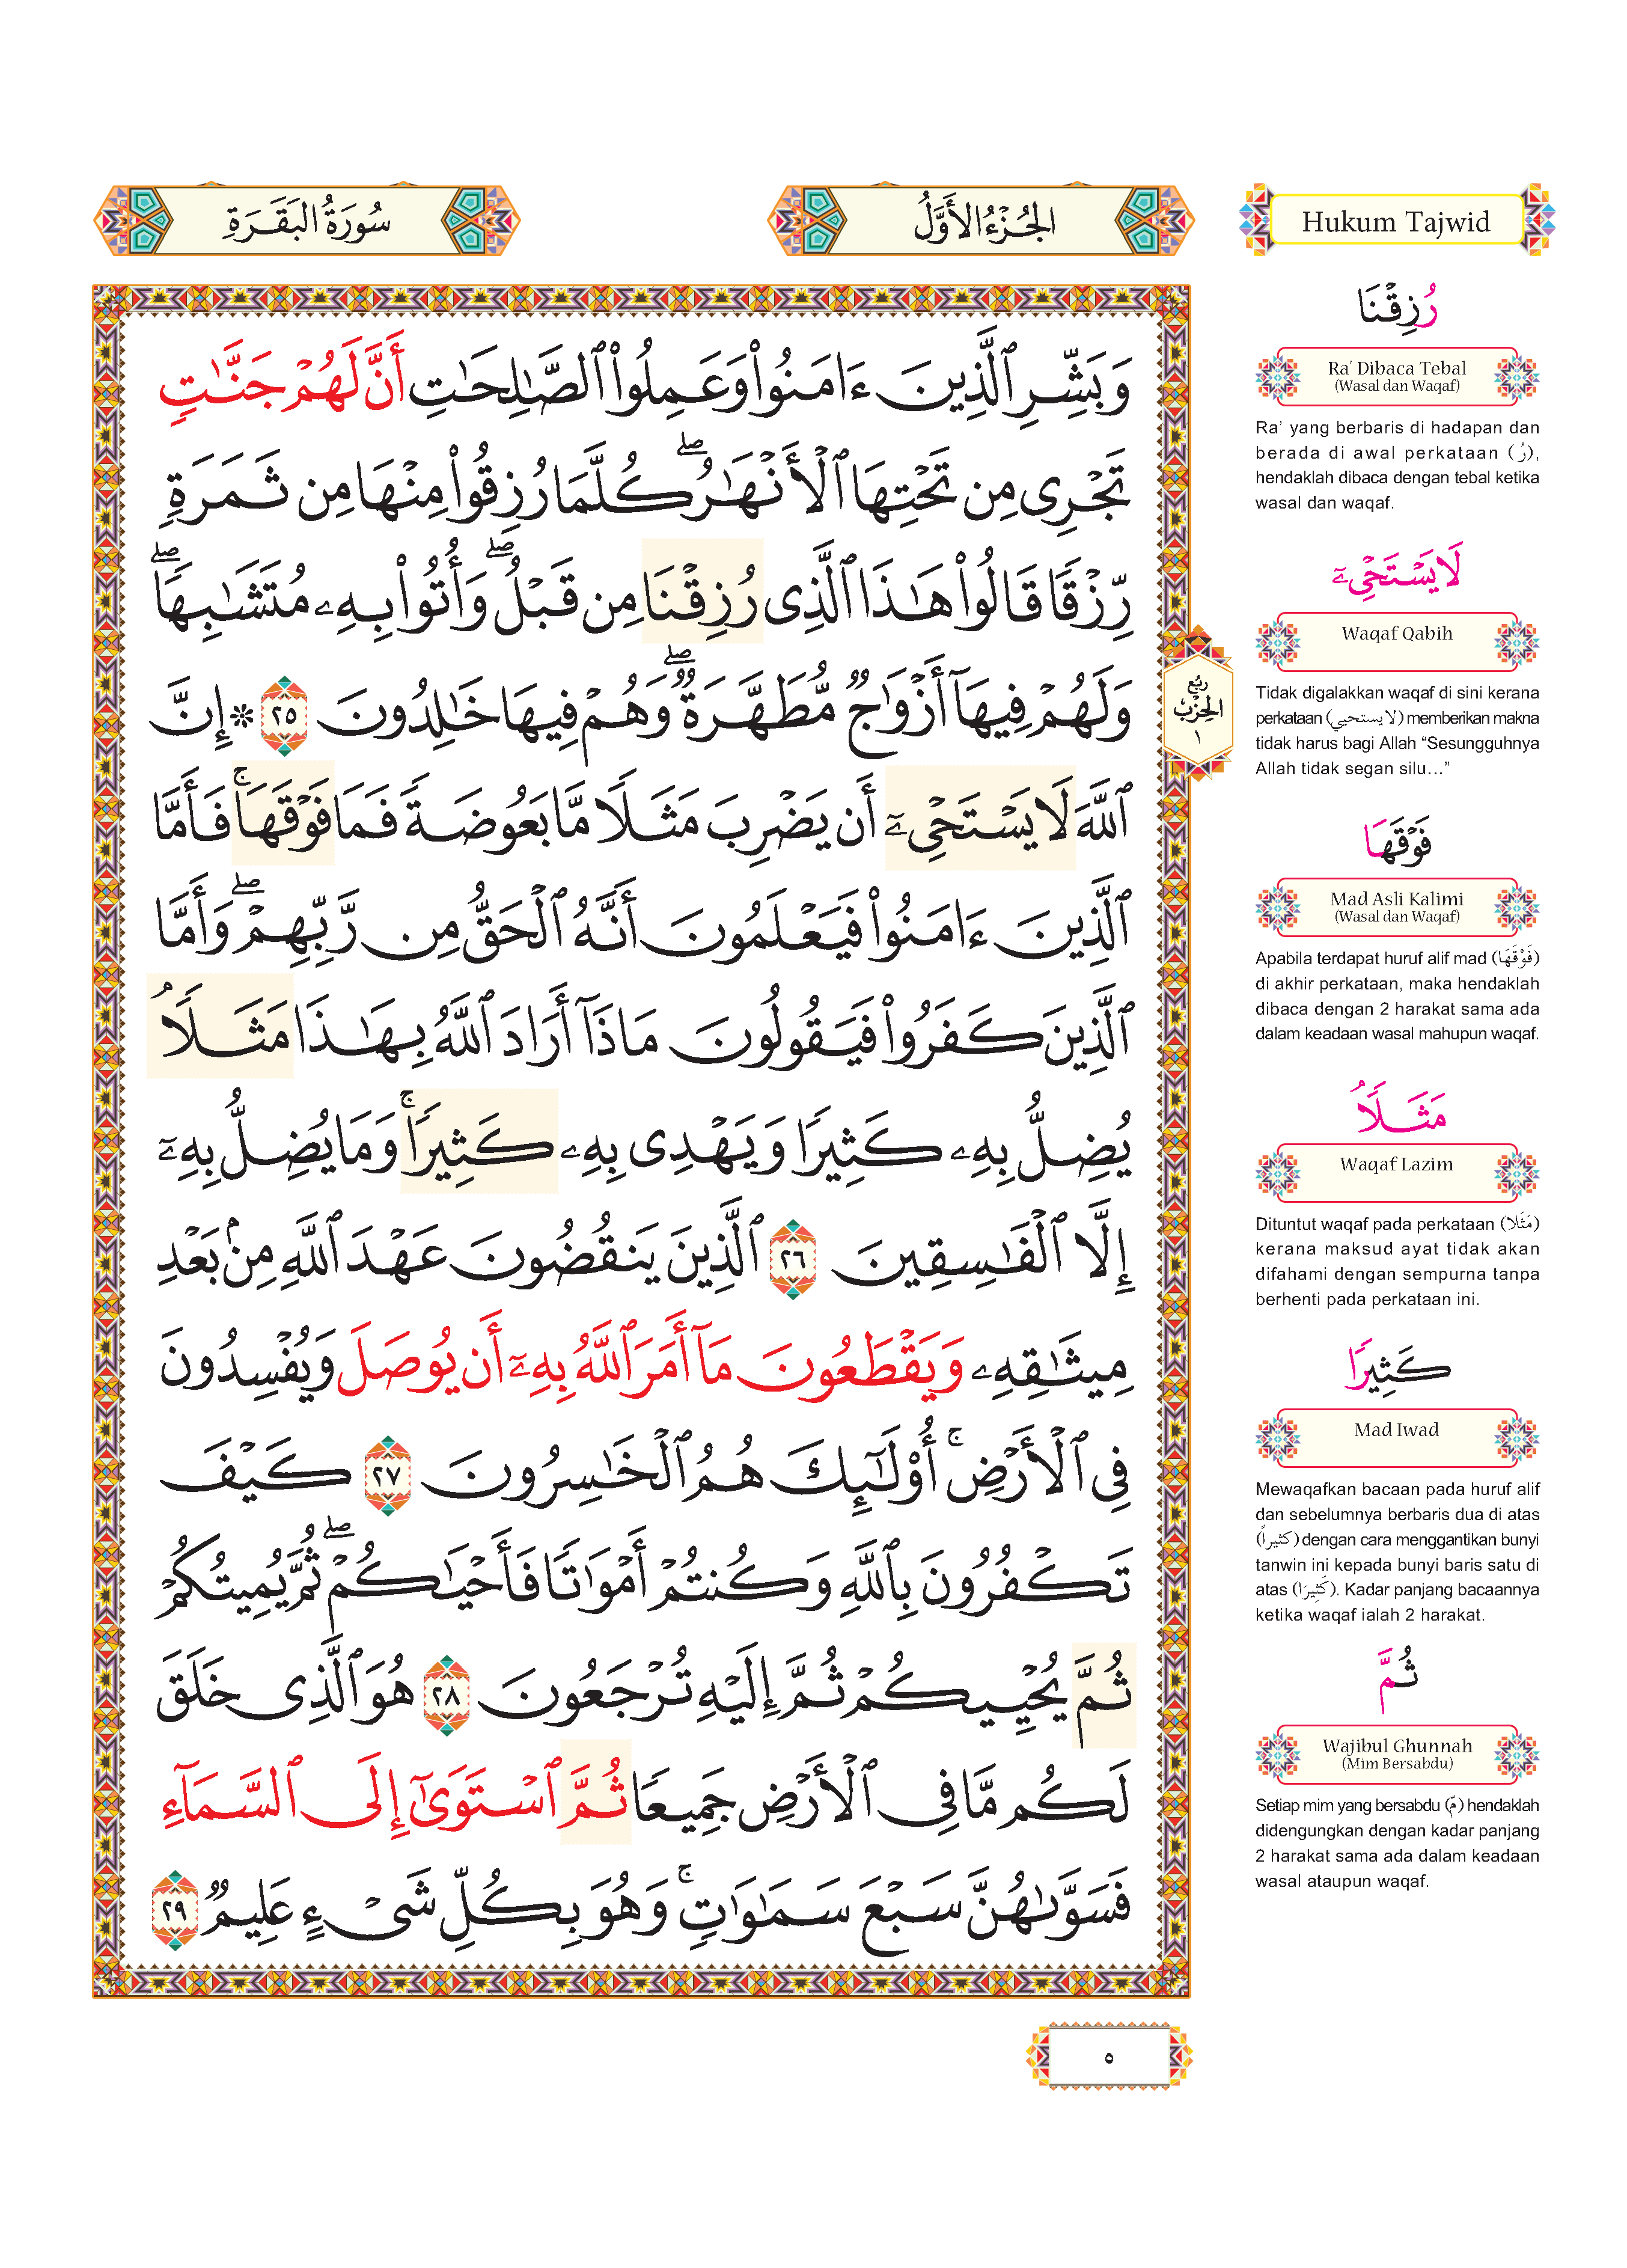 سُورَةُ البَقَرَةِ
الجُزْءُ الأَوَّلُ
Hukum Tajwid
وَبَشِّرِ ٱلَّذِينَ ءَامَنُوا۟ وَعَمِلُوا۟ ٱلصَّـٰلِحَـٰتِ أَنَّ لَهُمْ جَنَّـٰتٍ
تَجْرِى مِن تَحْتِهَا ٱلْأَنْهَـٰرُ ۖ كُلَّمَا رُزِقُوا۟ مِنْهَا مِن ثَمَرَةٍ
رِّزْقًا قَالُوا۟ هَـٰذَا ٱلَّذِى رُزِقْنَا مِن قَبْلُ ۖ وَأُتُوا۟ بِهِۦ مُتَشَـٰبِهًا ۖ
وَلَهُمْ فِيهَآ أَزْوَٰجٌ مُّطَهَّرَةٌ ۖ وَهُمْ فِيهَا خَـٰلِدُونَ ٢٥ ۞ إِنَّ
ٱللَّهَ لَا يَسْتَحْىِۦٓ أَن يَضْرِبَ مَثَلًا مَّا بَعُوضَةً فَمَا فَوْقَهَا ۚ فَأَمَّا
ٱلَّذِينَ ءَامَنُوا۟ فَيَعْلَمُونَ أَنَّهُ ٱلْحَقُّ مِن رَّبِّهِمْ ۖ وَأَمَّا
ٱلَّذِينَ كَفَرُوا۟ فَيَقُولُونَ مَاذَآ أَرَادَ ٱللَّهُ بِهَـٰذَا مَثَلًا ۘ
يُضِلُّ بِهِۦ كَثِيرًا وَيَهْدِى بِهِۦ كَثِيرًا ۚ وَمَا يُضِلُّ بِهِۦٓ
إِلَّا ٱلْفَـٰسِقِينَ ٢٦ ٱلَّذِينَ يَنقُضُونَ عَهْدَ ٱللَّهِ مِنۢ بَعْدِ
مِيثَـٰقِهِۦ وَيَقْطَعُونَ مَآ أَمَرَ ٱللَّهُ بِهِۦٓ أَن يُوصَلَ وَيُفْسِدُونَ
فِى ٱلْأَرْضِ ۚ أُو۟لَـٰٓئِكَ هُمُ ٱلْخَـٰسِرُونَ ٢٧ كَيْفَ
تَكْفُرُونَ بِٱللَّهِ وَكُنتُمْ أَمْوَٰتًا فَأَحْيَـٰكُمْ ۖ ثُمَّ يُمِيتُكُمْ
ثُمَّ يُحْيِيكُمْ ثُمَّ إِلَيْهِ تُرْجَعُونَ ٢٨ هُوَ ٱلَّذِى خَلَقَ
لَكُم مَّا فِى ٱلْأَرْضِ جَمِيعًا ثُمَّ ٱسْتَوَىٰٓ إِلَى ٱلسَّمَآءِ
فَسَوَّىٰهُنَّ سَبْعَ سَمَـٰوَٰتٍ ۚ وَهُوَ بِكُلِّ شَىْءٍ عَلِيمٌ ٢٩
ربع
الحزب
١
رُزِقْنَا
Ra' Dibaca Tebal
(Wasal dan Waqaf)
Ra’ yang berbaris di hadapan dan
berada di awal perkataan (رُ),
hendaklah dibaca dengan tebal ketika
wasal dan waqaf.
لَا يَسْتَحْىِۦٓ
Waqaf Qabih
Tidak digalakkan waqaf di sini kerana
perkataan (لا يستحيي) memberikan makna
tidak harus bagi Allah “Sesungguhnya
Allah tidak segan silu...”
فَوْقَهَا
Mad Asli Kalimi
(Wasal dan Waqaf)
Apabila terdapat huruf alif mad (فَوْقَهَا)
di akhir perkataan, maka hendaklah
dibaca dengan 2 harakat sama ada
dalam keadaan wasal mahupun waqaf.
مَثَلًا ۘ
Waqaf Lazim
Dituntut waqaf pada perkataan (مَثَلًا)
kerana maksud ayat tidak akan
difahami dengan sempurna tanpa
berhenti pada perkataan ini.
كَثِيرًا
Mad Iwad
Mewaqafkan bacaan pada huruf alif
dan sebelumnya berbaris dua di atas
(كثيراً) dengan cara menggantikan bunyi
tanwin ini kepada bunyi baris satu di
atas (كَثِيرَا). Kadar panjang bacaannya
ketika waqaf ialah 2 harakat.
ثُمَّ
Wajibul Ghunnah
(Mim Bersabdu)
Setiap mim yang bersabdu (مّ) hendaklah
didengungkan dengan kadar panjang
2 harakat sama ada dalam keadaan
wasal ataupun waqaf.
٥